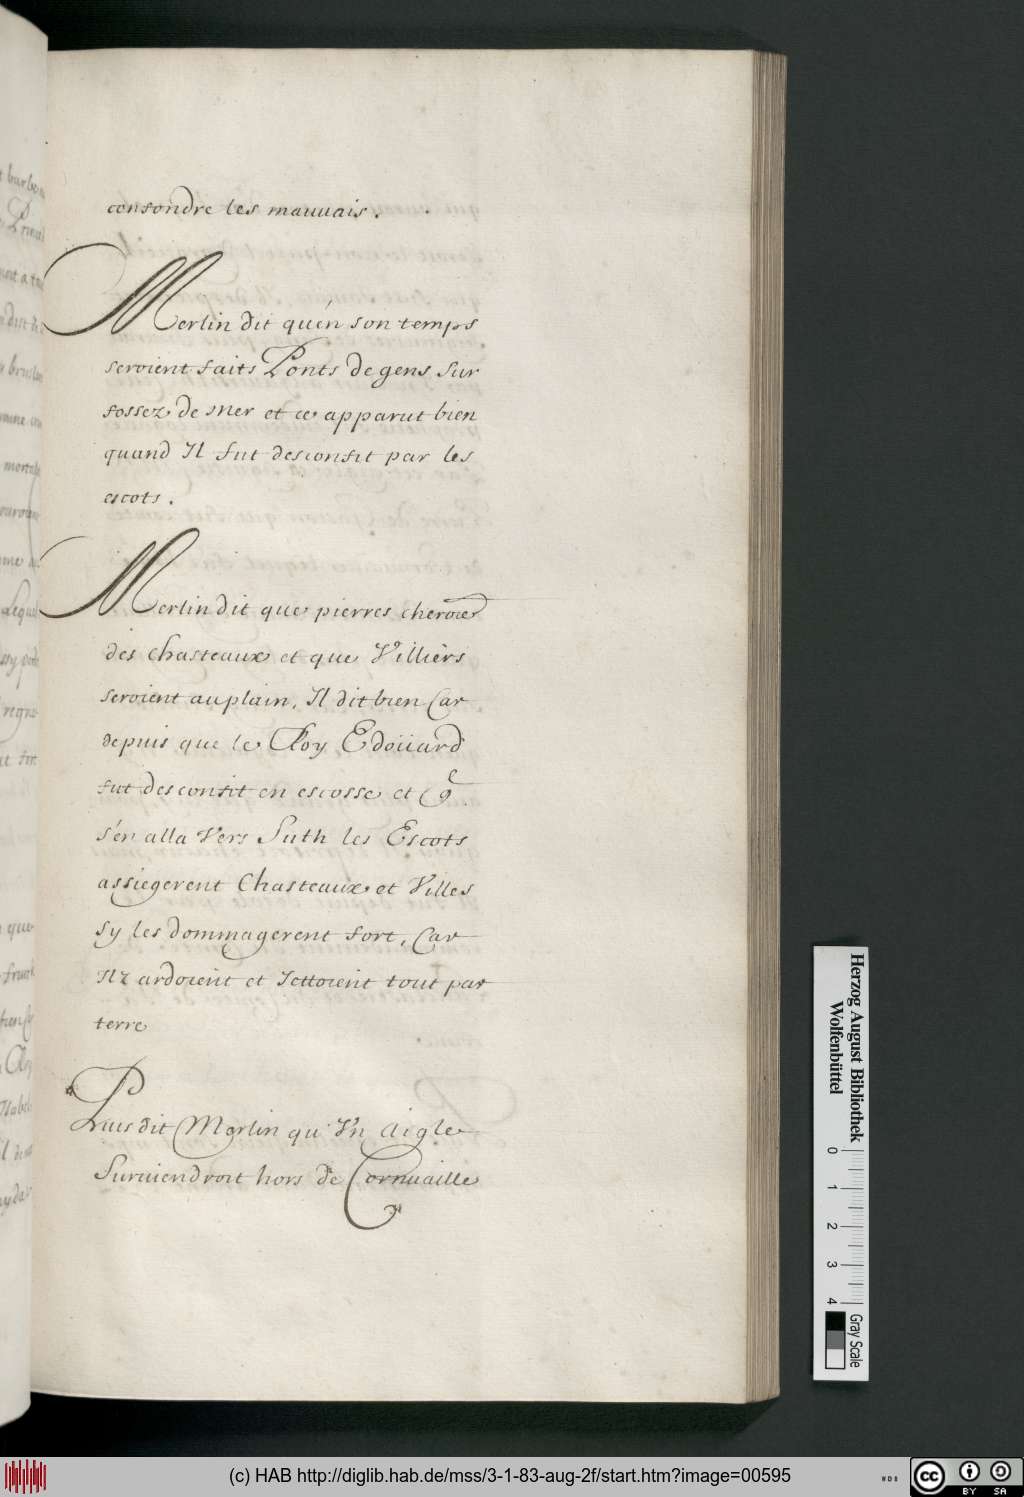 confondre les mauuais.
Merlin dit qu'en son temps
seroient faits Ponts de gens sur
fossez de mer et ce apparut bien
quand Il fut desconfit par les
escots.
Merlin dit que pierres
des chasteaux et que Villiers
seroient au plain, Il dit bien Car
depuis que le Roy Edoüard
fut desconfit en escosse et
s'en alla Vers Suth les Escots
assiegerent Chasteaux et Villes
sy les dommagerent fort, Car
Ilz ardoient et Jettoient tout par
terre
Puis dit Merlin qu'Vn aigle
Suruiendroit hors de Cornuaille
Herzog August Bibliothek
Wolfenbüttel
0 1 2 3 4
Gray Scale
(c) HAB http://diglib.hab.de/mss/3-1-83-aug-2f/start.htm?image=00595
cc BY SA